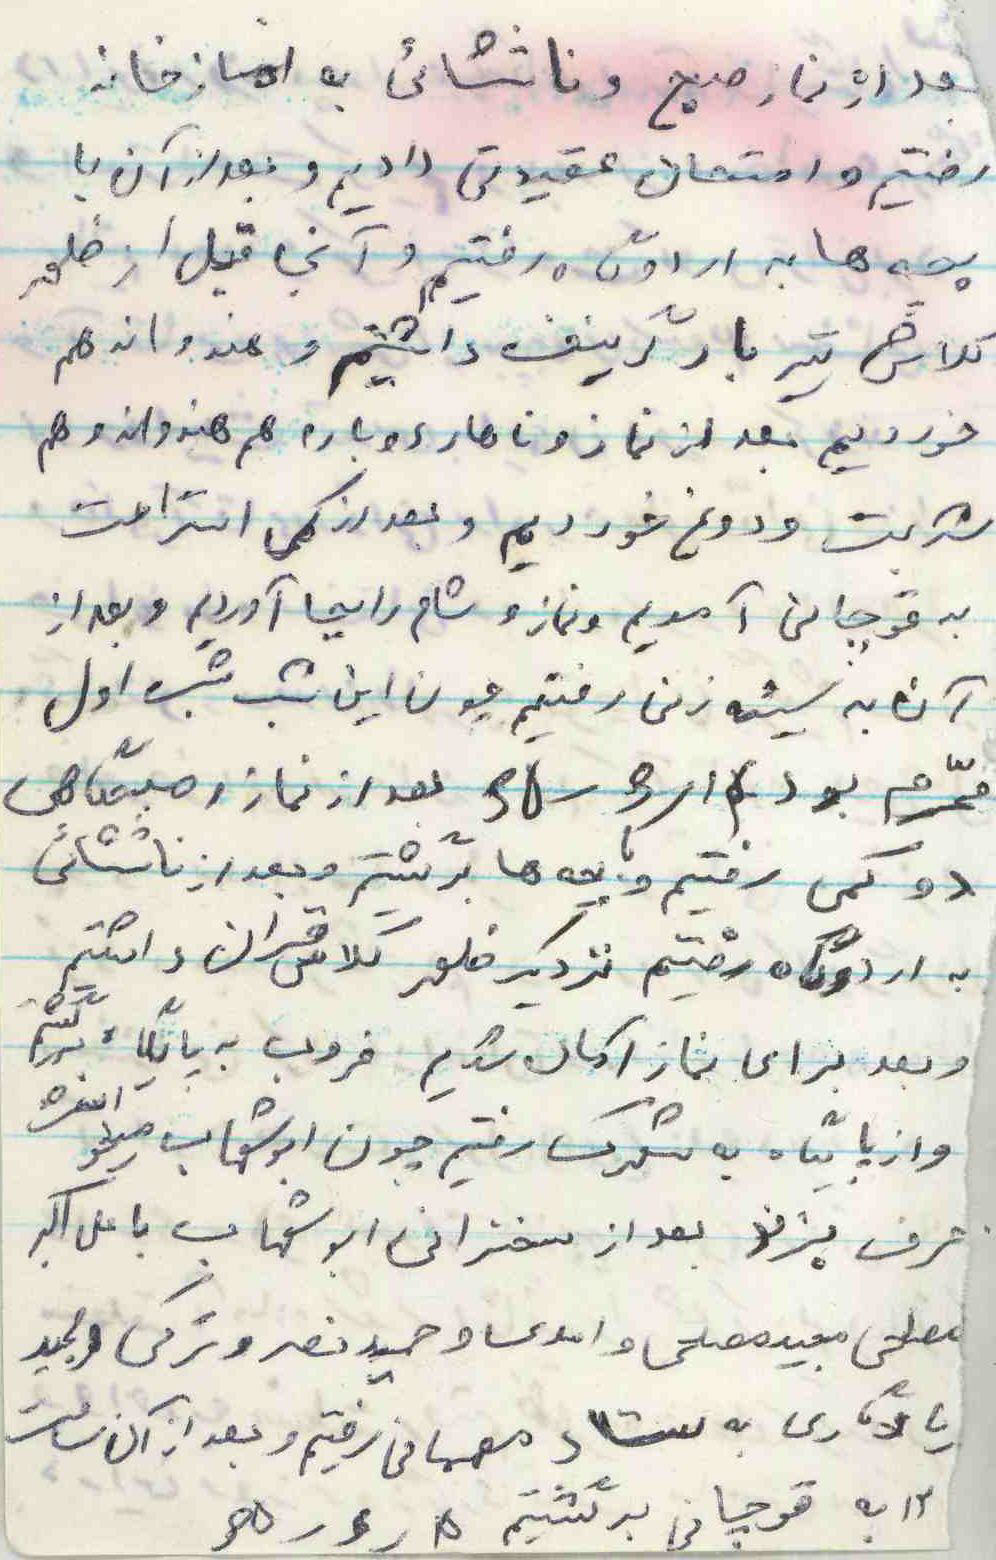 بعد از نماز صبح و ناشتائی به نماز خانه
رفتیم و امتحان عقیدتی دادیم و بعد از آن با
بچه ها به اردوگاه رفتیم و آنجا قبل از ظهر
کلاس تیربار گرینف داشتیم و هندوانه هم
خوردیم بعد از نماز و ناهار دوباره هم هندوانه و هم
شربت و دوغ خوردیم و بعد از کمی استراحت
به قوچانی آمدیم و نماز و شام را بجا آوردیم و بعد از
آن به سینه زنی رفتیم چون این شب شب اول
محرّم بود بعد از نماز صبحگاهی
دو کمی رفتیم و با بچه ها برگشتیم و بعد از ناشتائی
به اردوگاه رفتیم نزدیک ظهر کلاس قرآن داشتیم
و بعد برای نماز آماده شدیم غروب به پایگاه برگشتیم
و از پایگاه به شهرک رفتیم چون ابوشهاب میخواست
حرف بزند بعد از سخنرانی ابوشهاب با علی اکبر
مصلحی مجید مصلحی و اسدی و حمید نصر و ترکی و مجید
یادگاری به ستاد مهمانی رفتیم و بعد از آن ساعت
۱۲ به قوچانی برگشتیم